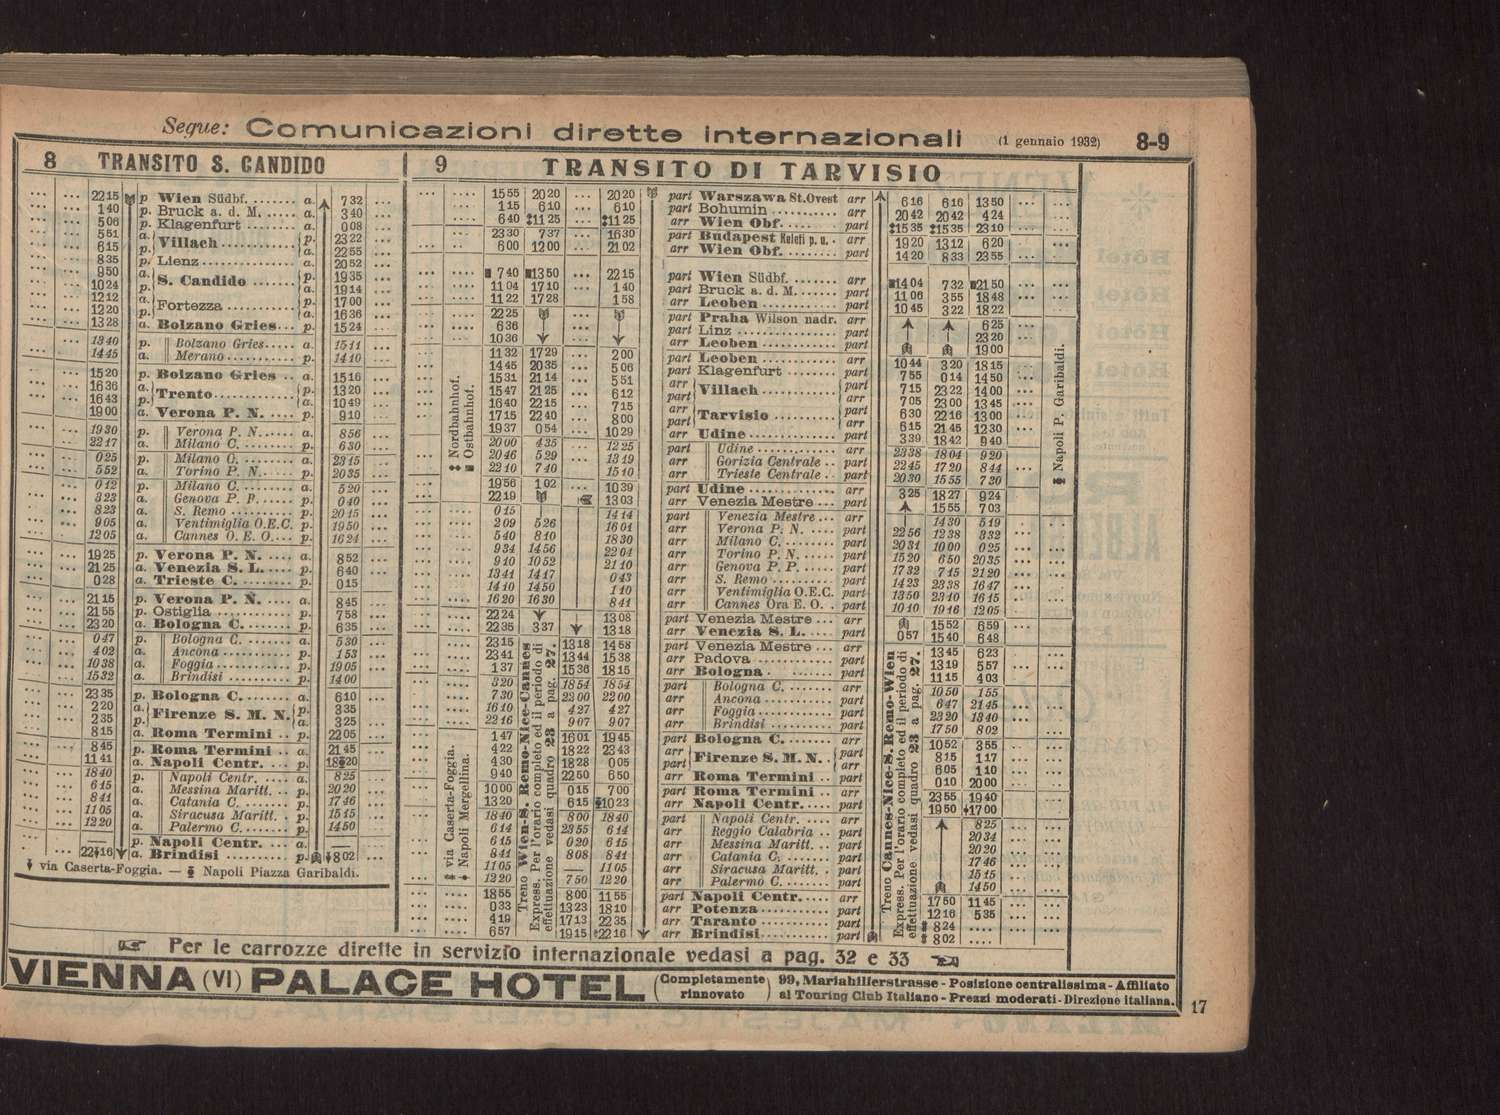 Segue: Comunicazioni dirette internazionali (1 gennaio 1932) 8-9
8 TRANSITO S. CANDIDO
2215 p Wien Südbf. a. 732
140 p. Bruck a. d. M. a. 340
506 p. Klagenfurt a. 008
551 a. Villach p. 2322
615 p. a. 2255
835 p. Lienz a. 2052
950 a. S. Candido p. 1935
1024 p. a. 1914
1212 a. Fortezza p. 1700
1220 p. a. 1636
1328 a. Bolzano Gries p. 1524
1340 p. Bolzano Gries a. 1511
1445 a. Merano p. 1410
1520 p. Bolzano Gries a. 1516
1636 a. Trento p. 1320
1643 p. a. 1049
1900 a. Verona P. N. p. 910
1930 p. Verona P. N. a. 856
2217 a. Milano C. p. 630
025 p. Milano C. a. 2315
552 a. Torino P. N. p. 2035
012 p. Milano C. a. 520
323 a. Genova P. P. p. 040
823 a. S. Remo p. 2015
905 a. Ventimiglia O.E.C. p. 1950
1205 a. Cannes O. E. O. p. 1624
1925 p. Verona P. N. a. 852
2125 a. Venezia S. L. p. 640
028 a. Trieste C. p. 015
2115 p. Verona P. N. a. 845
2155 p. Ostiglia p. 758
2320 a. Bologna C. p. 635
047 p. Bologna C. a. 530
402 a. Ancona p. 153
1038 a. Foggia p. 1905
1532 a. Brindisi p. 1400
2335 p. Bologna C. a. 610
220 a. Firenze S. M. N. p. 335
235 p. a. 325
815 a. Roma Termini p. 2205
845 p. Roma Termini a. 2145
1141 a. Napoli Centr. p. 1820
1840 p. Napoli Centr. a. 825
615 a. Messina Maritt. p. 2020
841 a. Catania C. p. 1746
1105 a. Siracusa Maritt. p. 1515
1220 a. Palermo C. p. 1450
— p. Napoli Centr. a. —
2216 a. Brindisi p. 802
via Caserta-Foggia. — Napoli Piazza Garibaldi.
9 TRANSITO DI TARVISIO
1555 2020 ... 2020 part Warszawa St.Ovest arr 616 616 1350
115 610 ... 610 part Bohumin arr 2042 2042 424
640 1125 ... 1125 arr Wien Obf. part 1535 1535 2310
2330 737 1630 part Budapest Keleti p. u. arr 1920 1312 620
600 1200 2102 arr Wien Obf. part 1420 833 2355
740 1350 ... 2215 part Wien Südbf. arr 1404 732 2150
1104 1710 ... 140 part Bruck a. d. M. part 1106 355 1848
1122 1728 158 arr Leoben part 1045 322 1822
2225 part Praha Wilson nadr. arr 625
636 part Linz part 2320
1036 arr Leoben part 1900
1132 1729 ... 200 part Leoben arr 1044 320 1815
1445 2035 ... 506 part Klagenfurt part 755 014 1450
1531 2114 ... 551 arr Villach part 715 2322 1400
1547 2125 ... 612 part arr 705 2300 1345
1640 2215 ... 715 arr Tarvisio part 630 2216 1300
1715 2240 ... 800 part arr 615 2145 1230
1937 054 ... 1029 arr Udine part 339 1842 940
2000 435 ... 1225 part Udine arr 2338 1804 920
2046 529 ... 1319 arr Gorizia Centrale part 2245 1720 844
2210 740 ... 1510 arr Trieste Centrale part 2030 1555 730
1956 102 ... 1039 part Udine arr 325 1827 924
2219 1303 arr Venezia Mestre part 1555 703
015 1414 part Venezia Mestre arr 1430 519
209 526 1601 arr Verona P. N. part 2256 1238 332
540 810 1830 arr Milano C. part 2031 1000 025
934 1456 2204 arr Torino P. N. part 1520 650 2035
910 1052 2110 arr Genova P. P. part 1732 715 2120
1341 1417 043 arr S. Remo part 1423 2338 1647
1410 1450 110 arr Ventimiglia O.E.C. part 1350 2310 1615
1620 1630 841 arr Cannes Ora E. O. part 1010 1916 1205
2224 1308 part Venezia Mestre arr 1552 659
2235 337 1318 arr Venezia S. L. part 057 1540 648
2315 1318 1458 part Venezia Mestre arr 1345 623
2341 1344 1538 arr Padova part 1319 557
137 1536 1815 arr Bologna part 1115 403
320 1854 1854 part Bologna C. arr 1050 155
730 2300 2200 arr Ancona part 647 2145
1610 427 427 arr Foggia part 2320 1840
2216 907 907 arr Brindisi part 1750 802
147 1601 1945 part Bologna C. arr 1052 355
422 1822 2343 arr Firenze S. M. N. part 815 117
430 1828 005 part arr 605 110
940 2250 650 arr Roma Termini part 010 2000
1000 015 700 part Roma Termini arr 2355 1940
1320 615 1023 arr Napoli Centr. part 1950 1700
1840 800 1840 part Napoli Centr. arr 825
614 2355 614 arr Reggio Calabria part 2034
615 020 615 arr Messina Maritt. part 2020
841 808 841 arr Catania C. part 1746
1105 — 1105 arr Siracusa Maritt. part 1515
1220 750 1220 arr Palermo C. part 1450
1855 800 1155 part Napoli Centr. arr 1750 1145
033 1323 1810 arr Potenza part 1216 535
419 1713 2235 arr Taranto part 824
657 1915 2216 arr Brindisi part 802
Nordbahnhof.
Ostbahnhof.
via Caserta-Foggia.
Napoli Mergellina.
Treno Wien-S. Remo-Nice-Cannes
Express. Per l'orario completo ed il periodo di
effettuazione vedasi quadro 23 a pag. 27.
Treno Cannes-Nice-S. Remo-Wien
Express. Per l'orario completo ed il periodo di
effettuazione vedasi quadro 23 a pag. 27.
Napoli P. Garibaldi.
Per le carrozze dirette in servizio internazionale vedasi a pag. 32 e 33
VIENNA (VI) PALACE HOTEL (Completamente rinnovato) 99, Mariahilferstrasse - Posizione centralissima - Affiliato
al Touring Club Italiano - Prezzi moderati - Direzione italiana.
17